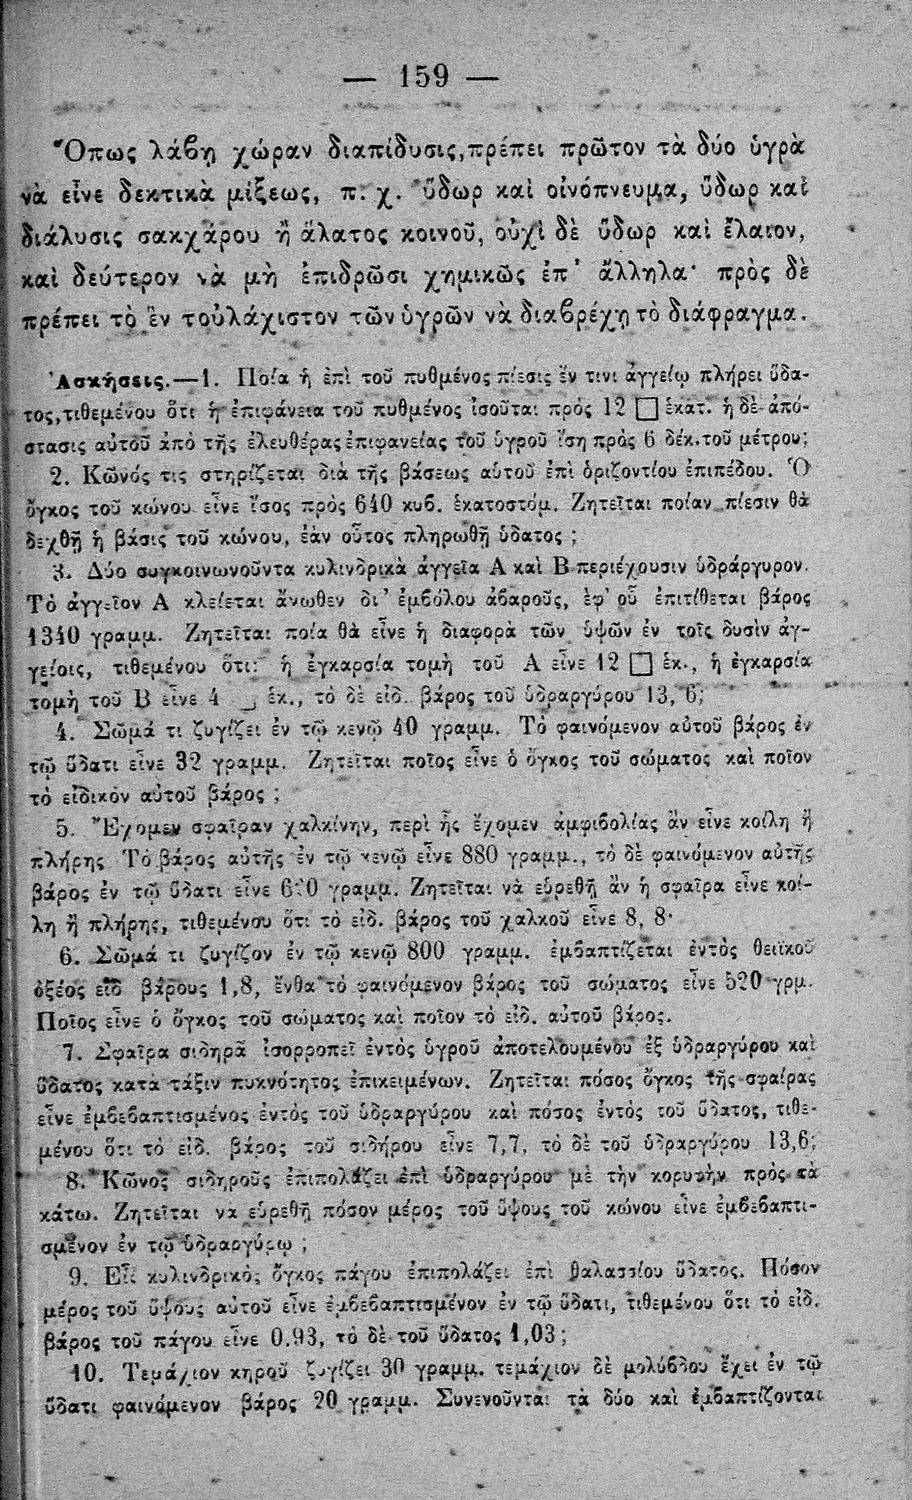 — 159 —
Ὅπως λάβῃ χώραν διαπίδυσις, πρέπει πρῶτον τὰ δύο ὑγρὰ
νὰ εἶνε δεκτικὰ μίξεως, π. χ. ὕδωρ καὶ οἰνόπνευμα, ὕδωρ καὶ
διάλυσις σακχάρου ἢ ἅλατος κοινοῦ, οὐχὶ δὲ ὕδωρ καὶ ἔλαιον,
καὶ δεύτερον νὰ μὴ ἐπιδρῶσι χημικῶς ἐπ' ἄλληλα· πρὸς δὲ
πρέπει τὸ ἓν τοὐλάχιστον τῶν ὑγρῶν νὰ διαβρέχῃ τὸ διάφραγμα.
Ἀσκήσεις.—1. Ποία ἡ ἐπὶ τοῦ πυθμένος πίεσις ἔν τινι ἀγγείῳ πλήρει ὕδα-
τος, τιθεμένου ὅτι ἡ ἐπιφάνεια τοῦ πυθμένος ἰσοῦται πρὸς 12 □ ἑκατ. ἡ δὲ ἀπό-
στασις αὐτοῦ ἀπὸ τῆς ἐλευθέρας ἐπιφανείας τοῦ ὑγροῦ ἴση πρὸς 6 δέκ. τοῦ μέτρου;
2. Κῶνός τις στηρίζεται διὰ τῆς βάσεως αὑτοῦ ἐπὶ ὁριζοντίου ἐπιπέδου. Ὁ
ὄγκος τοῦ κώνου εἶνε ἴσος πρὸς 640 κυβ. ἑκατοστόμ. Ζητεῖται ποίαν πίεσιν θὰ
δεχθῇ ἡ βάσις τοῦ κώνου, ἐὰν οὗτος πληρωθῇ ὕδατος ;
3. Δύο συγκοινωνοῦντα κυλινδρικὰ ἀγγεῖα Α καὶ Β περιέχουσιν ὑδράργυρον.
Τὸ ἀγγεῖον Α κλείεται ἄνωθεν δι' ἐμβόλου ἀβαροῦς, ἐφ' οὗ ἐπιτίθεται βάρος
1340 γραμμ. Ζητεῖται ποία θὰ εἶνε ἡ διαφορὰ τῶν ὑψῶν ἐν τοῖς δυσὶν ἀγ-
γείοις, τιθεμένου ὅτι ἡ ἐγκαρσία τομὴ τοῦ Α εἶνε 12 □ ἑκ., ἡ ἐγκαρσία
τομὴ τοῦ Β εἶνε 4 □ ἑκ., τὸ δὲ εἰδ. βάρος τοῦ ὑδραργύρου 13, 6;
4. Σῶμά τι ζυγίζει ἐν τῷ κενῷ 40 γραμμ. Τὸ φαινόμενον αὐτοῦ βάρος ἐν
τῷ ὕδατι εἶνε 32 γραμμ. Ζητεῖται ποῖος εἶνε ὁ ὄγκος τοῦ σώματος καὶ ποῖον
τὸ εἰδικὸν αὐτοῦ βάρος ;
5. Ἔχομεν σφαῖραν χαλκίνην, περὶ ἧς ἔχομεν ἀμφιβολίας ἂν εἶνε κοίλη ἢ
πλήρης Τὸ βάρος αὐτῆς ἐν τῷ κενῷ εἶνε 880 γραμμ., τὸ δὲ φαινόμενον αὐτῆς
βάρος ἐν τῷ ὕδατι εἶνε γραμμ. Ζητεῖται νὰ εὑρεθῇ ἂν ἡ σφαῖρα εἶνε κοί-
λη ἢ πλήρης, τιθεμένου ὅτι τὸ εἰδ. βάρος τοῦ χαλκοῦ εἶνε 8, 8·
6. Σῶμά τι ζυγίζον ἐν τῷ κενῷ 800 γραμμ. ἐμβαπτίζεται ἐντὸς θειϊκοῦ
ὀξέος εἰδ βάρους 1,8, ἔνθα τὸ φαινόμενον βάρος τοῦ σώματος εἶνε 520 γρμ.
Ποῖος εἶνε ὁ ὄγκος τοῦ σώματος καὶ ποῖον τὸ εἰδ. αὐτοῦ βάρος.
7. Σφαῖρα σιδηρᾶ ἰσορροπεῖ ἐντὸς ὑγροῦ ἀποτελουμένου ἐξ ὑδραργύρου καὶ
ὕδατος κατὰ τάξιν πυκνότητος ἐπικειμένων. Ζητεῖται πόσος ὄγκος τῆς σφαίρας
εἶνε ἐμβεβαπτισμένος ἐντὸς τοῦ ὑδραργύρου καὶ πόσος ἐντὸς τοῦ ὕδατος, τιθε-
μένου ὅτι τὸ εἰδ. βάρος τοῦ σιδήρου εἶνε 7,7, τὸ δὲ τοῦ ὑδραργύρου 13,6;
8. Κῶνος σιδηροῦς ἐπιπολάζει ἐπὶ ὑδραργύρου μὲ τὴν κορυφὴν πρὸς τὰ
κάτω. Ζητεῖται νὰ εὑρεθῇ πόσον μέρος τοῦ ὕψους τοῦ κώνου εἶνε ἐμβεβαπτι-
σμένον ἐν τῷ ὑδραργύρῳ ;
9. Εἷς κυλινδρικὸς ὄγκος πάγου ἐπιπολάζει ἐπὶ θαλασσίου ὕδατος. Πόσον
μέρος τοῦ ὕψους αὐτοῦ εἶνε ἐμβεβαπτισμένον ἐν τῷ ὕδατι, τιθεμένου ὅτι τὸ εἰδ.
βάρος τοῦ πάγου εἶνε 0.93, τὸ δὲ τοῦ ὕδατος 1,03;
10. Τεμάχιον κηροῦ ζυγίζει 30 γραμμ. τεμάχιον δὲ μολύβδου ἔχει ἐν τῷ
ὕδατι φαινόμενον βάρος 20 γραμμ. Συνενοῦνται τὰ δύο καὶ ἐμβαπτίζονται